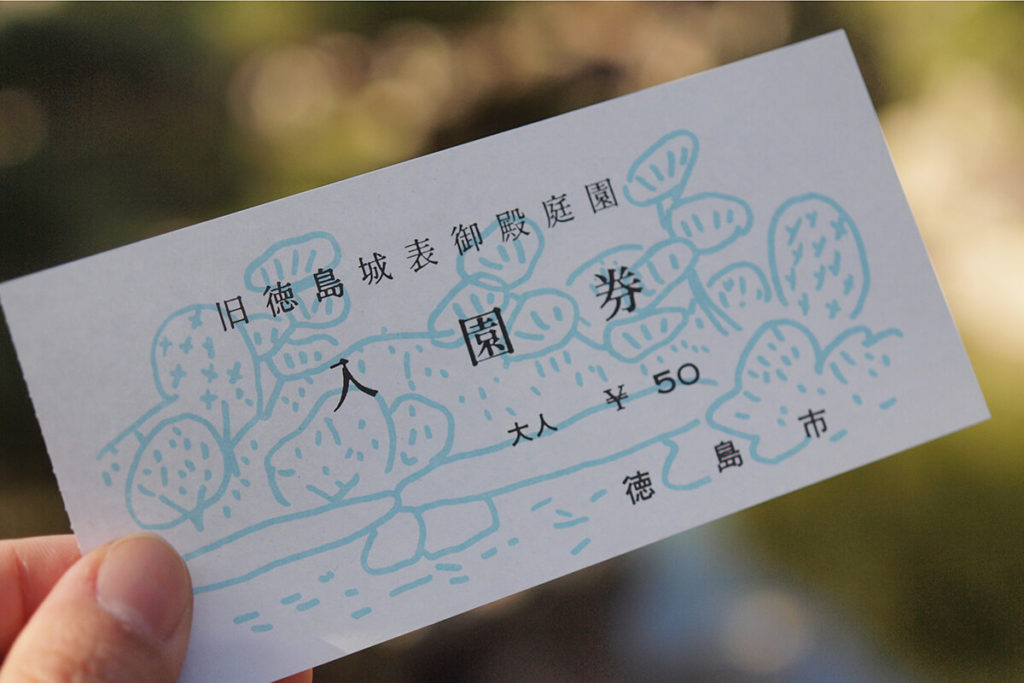 旧徳島城表御殿庭園
入園券
大人 ¥50
徳島市